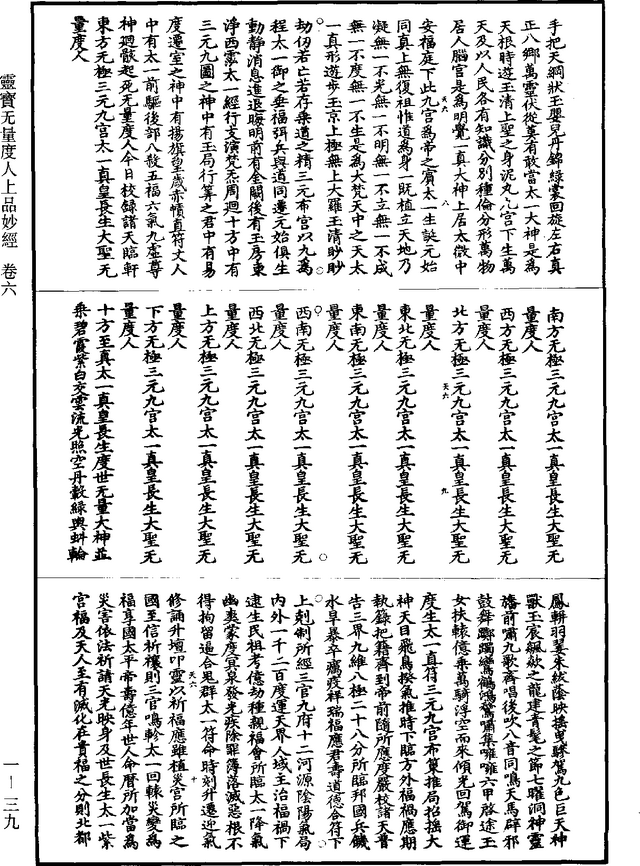 手把天綱狀玉嬰兒丹錦綠裳回旋左右真
正八鄉萬靈伏從莫有敢當太一大神是為
天根時遊玉清上聖之身泥丸九宮下生萬
天及以人民各有知識分別種倫分形萬物
居人腦宮是為明覺一真大神上居太微中
安福庭下此九宮為帝之賓太一生誕元始
同真上無復祖惟道為身一既植立天地乃
凝無一不光無一不明無一不立無一不成
無一不度無一不生是為大梵天中之天太
一真形遊步玉京上極無上大羅玉清眇眇
劫仞若亡若存乘道之精三元布宮以九為
程太一御之垂福弭兵與道同遷元始俱生
動靜消息進退晦明前有金闕後有玉房東
淨西靈太一經行支演梵炁周迴十方中有
三元九圖之神中有玉局行筭之君中有易
度遷室之神中有揚旗皇歲赤幘直符丈人
中有太一前驅後部八殺五福六氣九虛尊
神廻骸起死无量度人今日校録諸天臨軒
東方无極三元九宮太一真皇長生大聖无
量度人
南方无極三元九宮太一真皇長生大聖无
量度人
西方无極三元九宮太一真皇長生大聖无
量度人
北方无極三元九宮太一真皇長生大聖无
量度人
東北无極三元九宮太一真皇長生大聖无
量度人
東南无極三元九宮太一真皇長生大聖无
量度人
西南无極三元九宮太一真皇長生大聖无
量度人
西北无極三元九宮太一真皇長生大聖无
量度人
上方无極三元九宮太一真皇長生大聖无
量度人
下方无極三元九宮太一真皇長生大聖无
量度人
十方至真太一真皇長生度世无量大神並
乘碧霞紫白交雲流光照空丹轂綠輿斑輪
鳳軿羽翼朱紱蔭映搖曳驂駕九色巨天神
獸玉宸飆歘之龍建青髦之節七曜洞神靈
旛前嘯九歌齊唱後吹八音同鳴天馬辟邪
鼓舞躑躅鸞鶴鴻鷺嘯集嗺嗺六甲啓途玉
女扶轅億乘萬騎浮空而來傾光回駕御運
度生太一真符三元九宮布策推局招搖大
神天目飛鳥揆氣推時下臨方外福禍應期
執籙把籍齊到帝前隨所應度嚴校諸天普
告三界九維八極二十八分所臨邦國兵饑
水旱暴卒癘疫祥瑞福應眉壽道德合符下
上剋制所經三官九府十二河源陰陽氣局
內外一千二百度運天界人域主治福禍下
逮生民祖考億劫種親福會所臨太一降氣
幽裏蒙度冥泉發光疾除罪簿落滅惡根不
得拘留逼合鬼群太一符命時刻升遷迎氣
修誦升壇叩靈以祈福應雖植災宮所臨之
國至信祈禳則三官鳴軫太一回轅災變為
福享國太平帝壽億年世人命曆所加當為
災害依法祈請天光映身及世長生太一紫
宮福及天人主有滅化在貴福之分則北都
靈寶无量度人上品妙經 卷六
一—三九